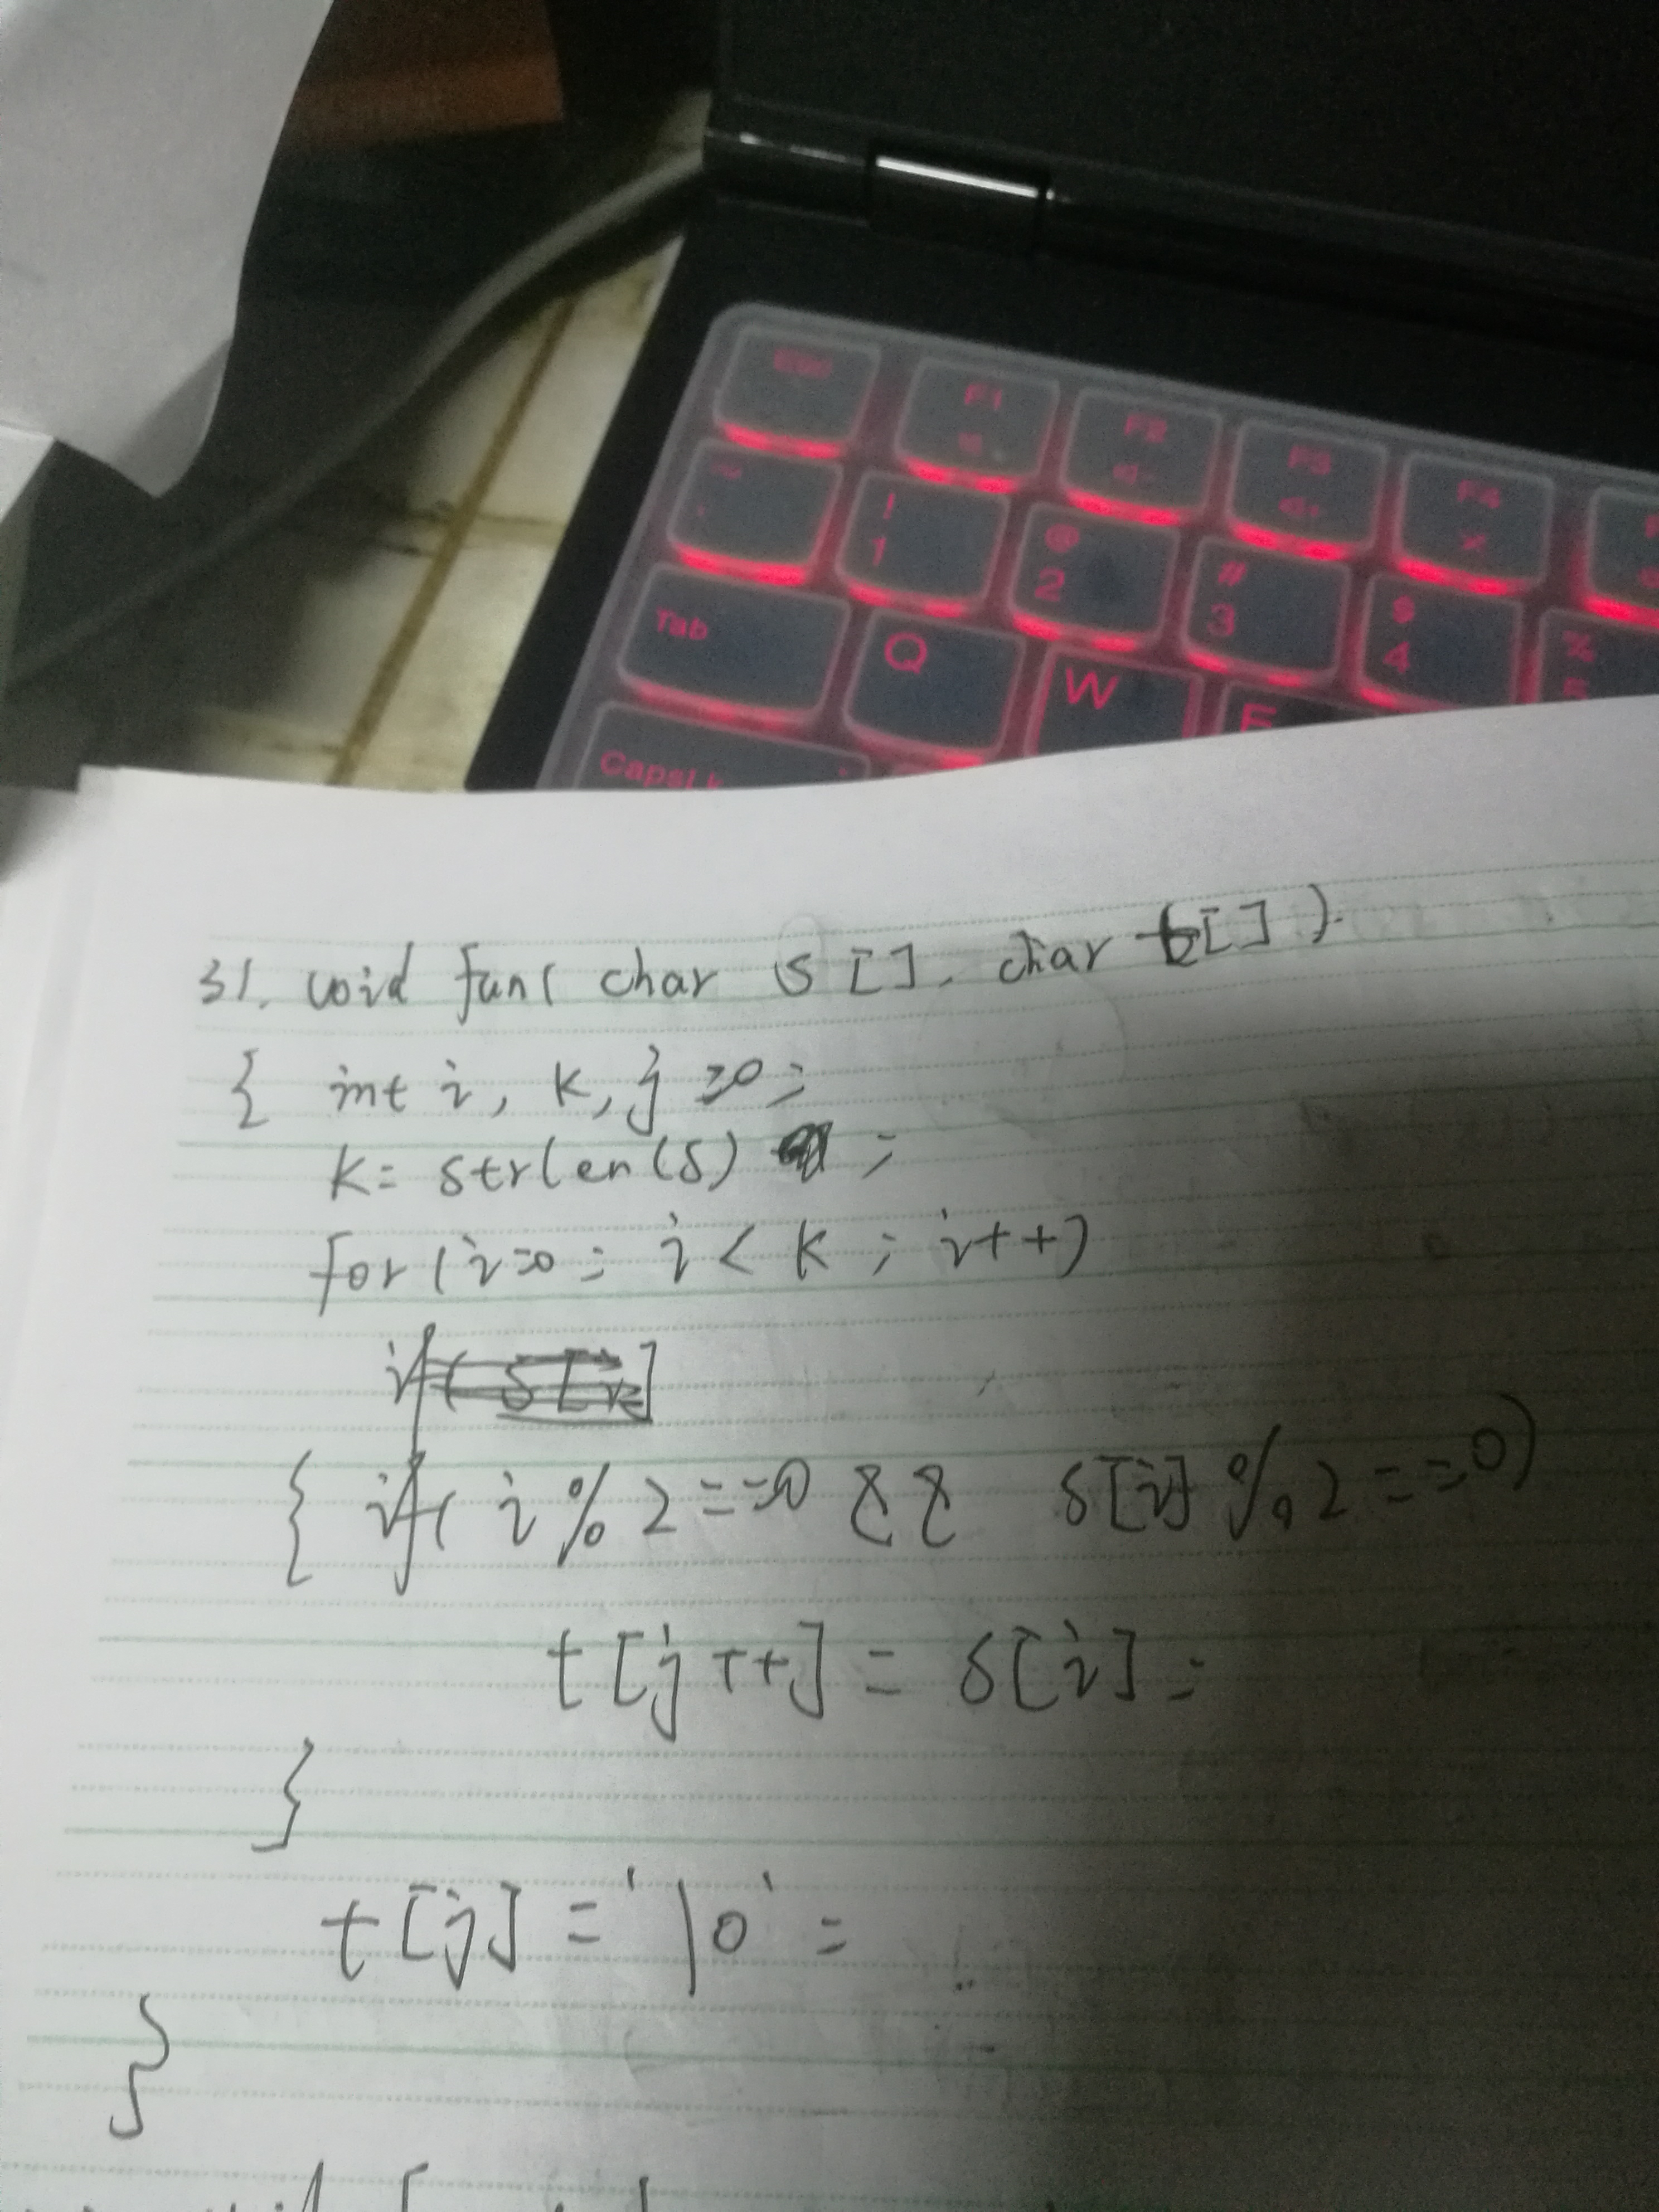 Esc F1 F2 F3 F4
~ ! 1 @ 2 # 3 $ 4 %
Tab Q W E
CapsLk
31. void fun( char s[], char t[])
{ int i, k, j=0;
k= strlen(s) ;
for(i=0; i<k; i++)
{ if( i%2==0 && s[i]%2==0)
t[j++] = s[i];
}
t[j]='\0';
}